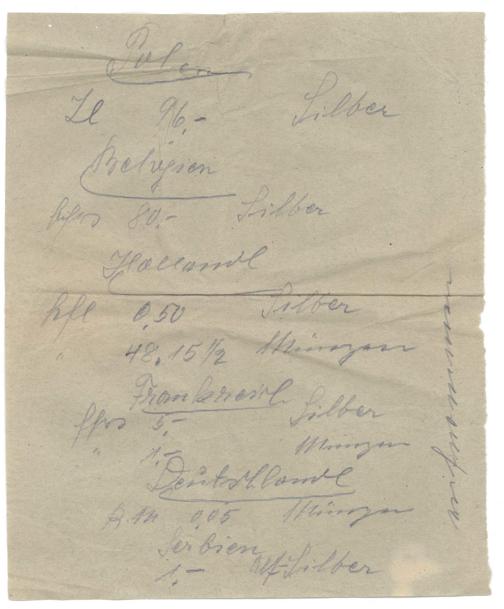 Polen
Zl 96,- Silber
Belgien
bfrs 80.- Silber
Holland
hfl 0,50 Silber
" 48.15 1/2 Münzen
Frankreich
ffrs 5,- Silber
" 1,- Münzen
Deutschland
RM 0,05 Münzen
Serbien
1,- Alt-Silber